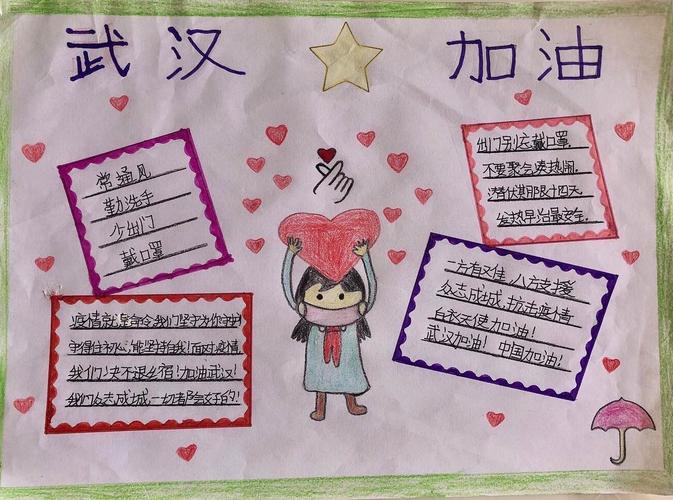 武汉 加油
常通风
勤洗手
少出门
戴口罩
出门别忘戴口罩,
不要聚会凑热闹.
潜伏期限十四天,
发热早治最安全.
疫情就是命令,我们坚守为你
守得住初心,能坚持自我!面对疫情
我们决不退缩!加油武汉!
我们众志成城,一切都会好的!
一方有难,八方支援
众志成城,抗击疫情
白衣天使加油!
武汉加油!中国加油!